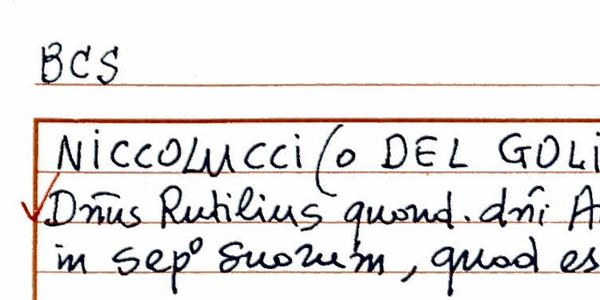 BCS
NiCCOLUCCi (o DEL GOLi
Dn̄us Rutilius quond. dn̄i A
in sepº suorum, quod es